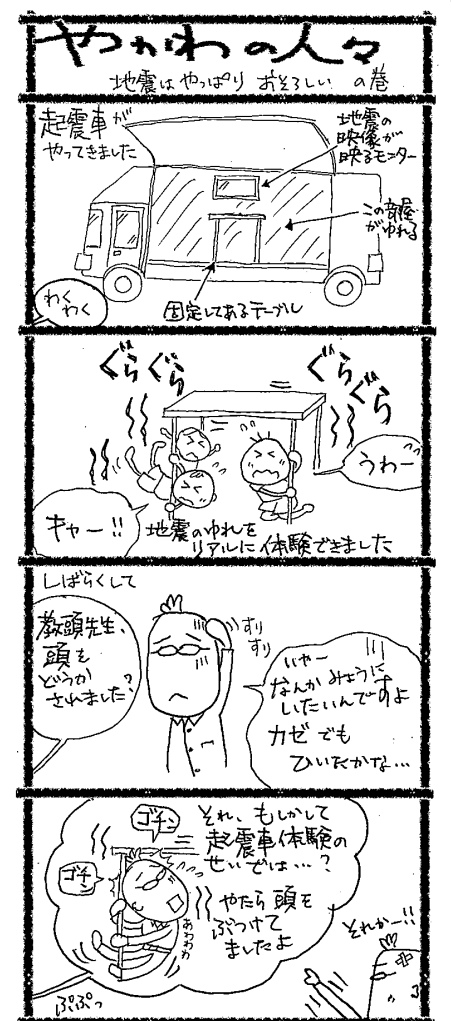 やつがわの人々
地震はやっぱり おそろしい の巻
起震車が
やってきました
地震の
映像が
映るモニター
この部屋
がゆれる
わく
わく
固定してあるテーブル
ぐらぐら
ぐらぐら
うわー
キャー!!
地震のゆれを
リアルに体験できました
しばらくして
教頭先生、
頭を
どうか
されました?
すり
すり
いやー
なんかみょうに
いたいんですよ
カゼでも
ひいたかな…
ゴチン
ゴチン
それ、もしかして
起震車体験の
せいでは…?
やたら頭を
ぶつけて
ましたよ
あわわわ
それかー!!
ぷぷっ